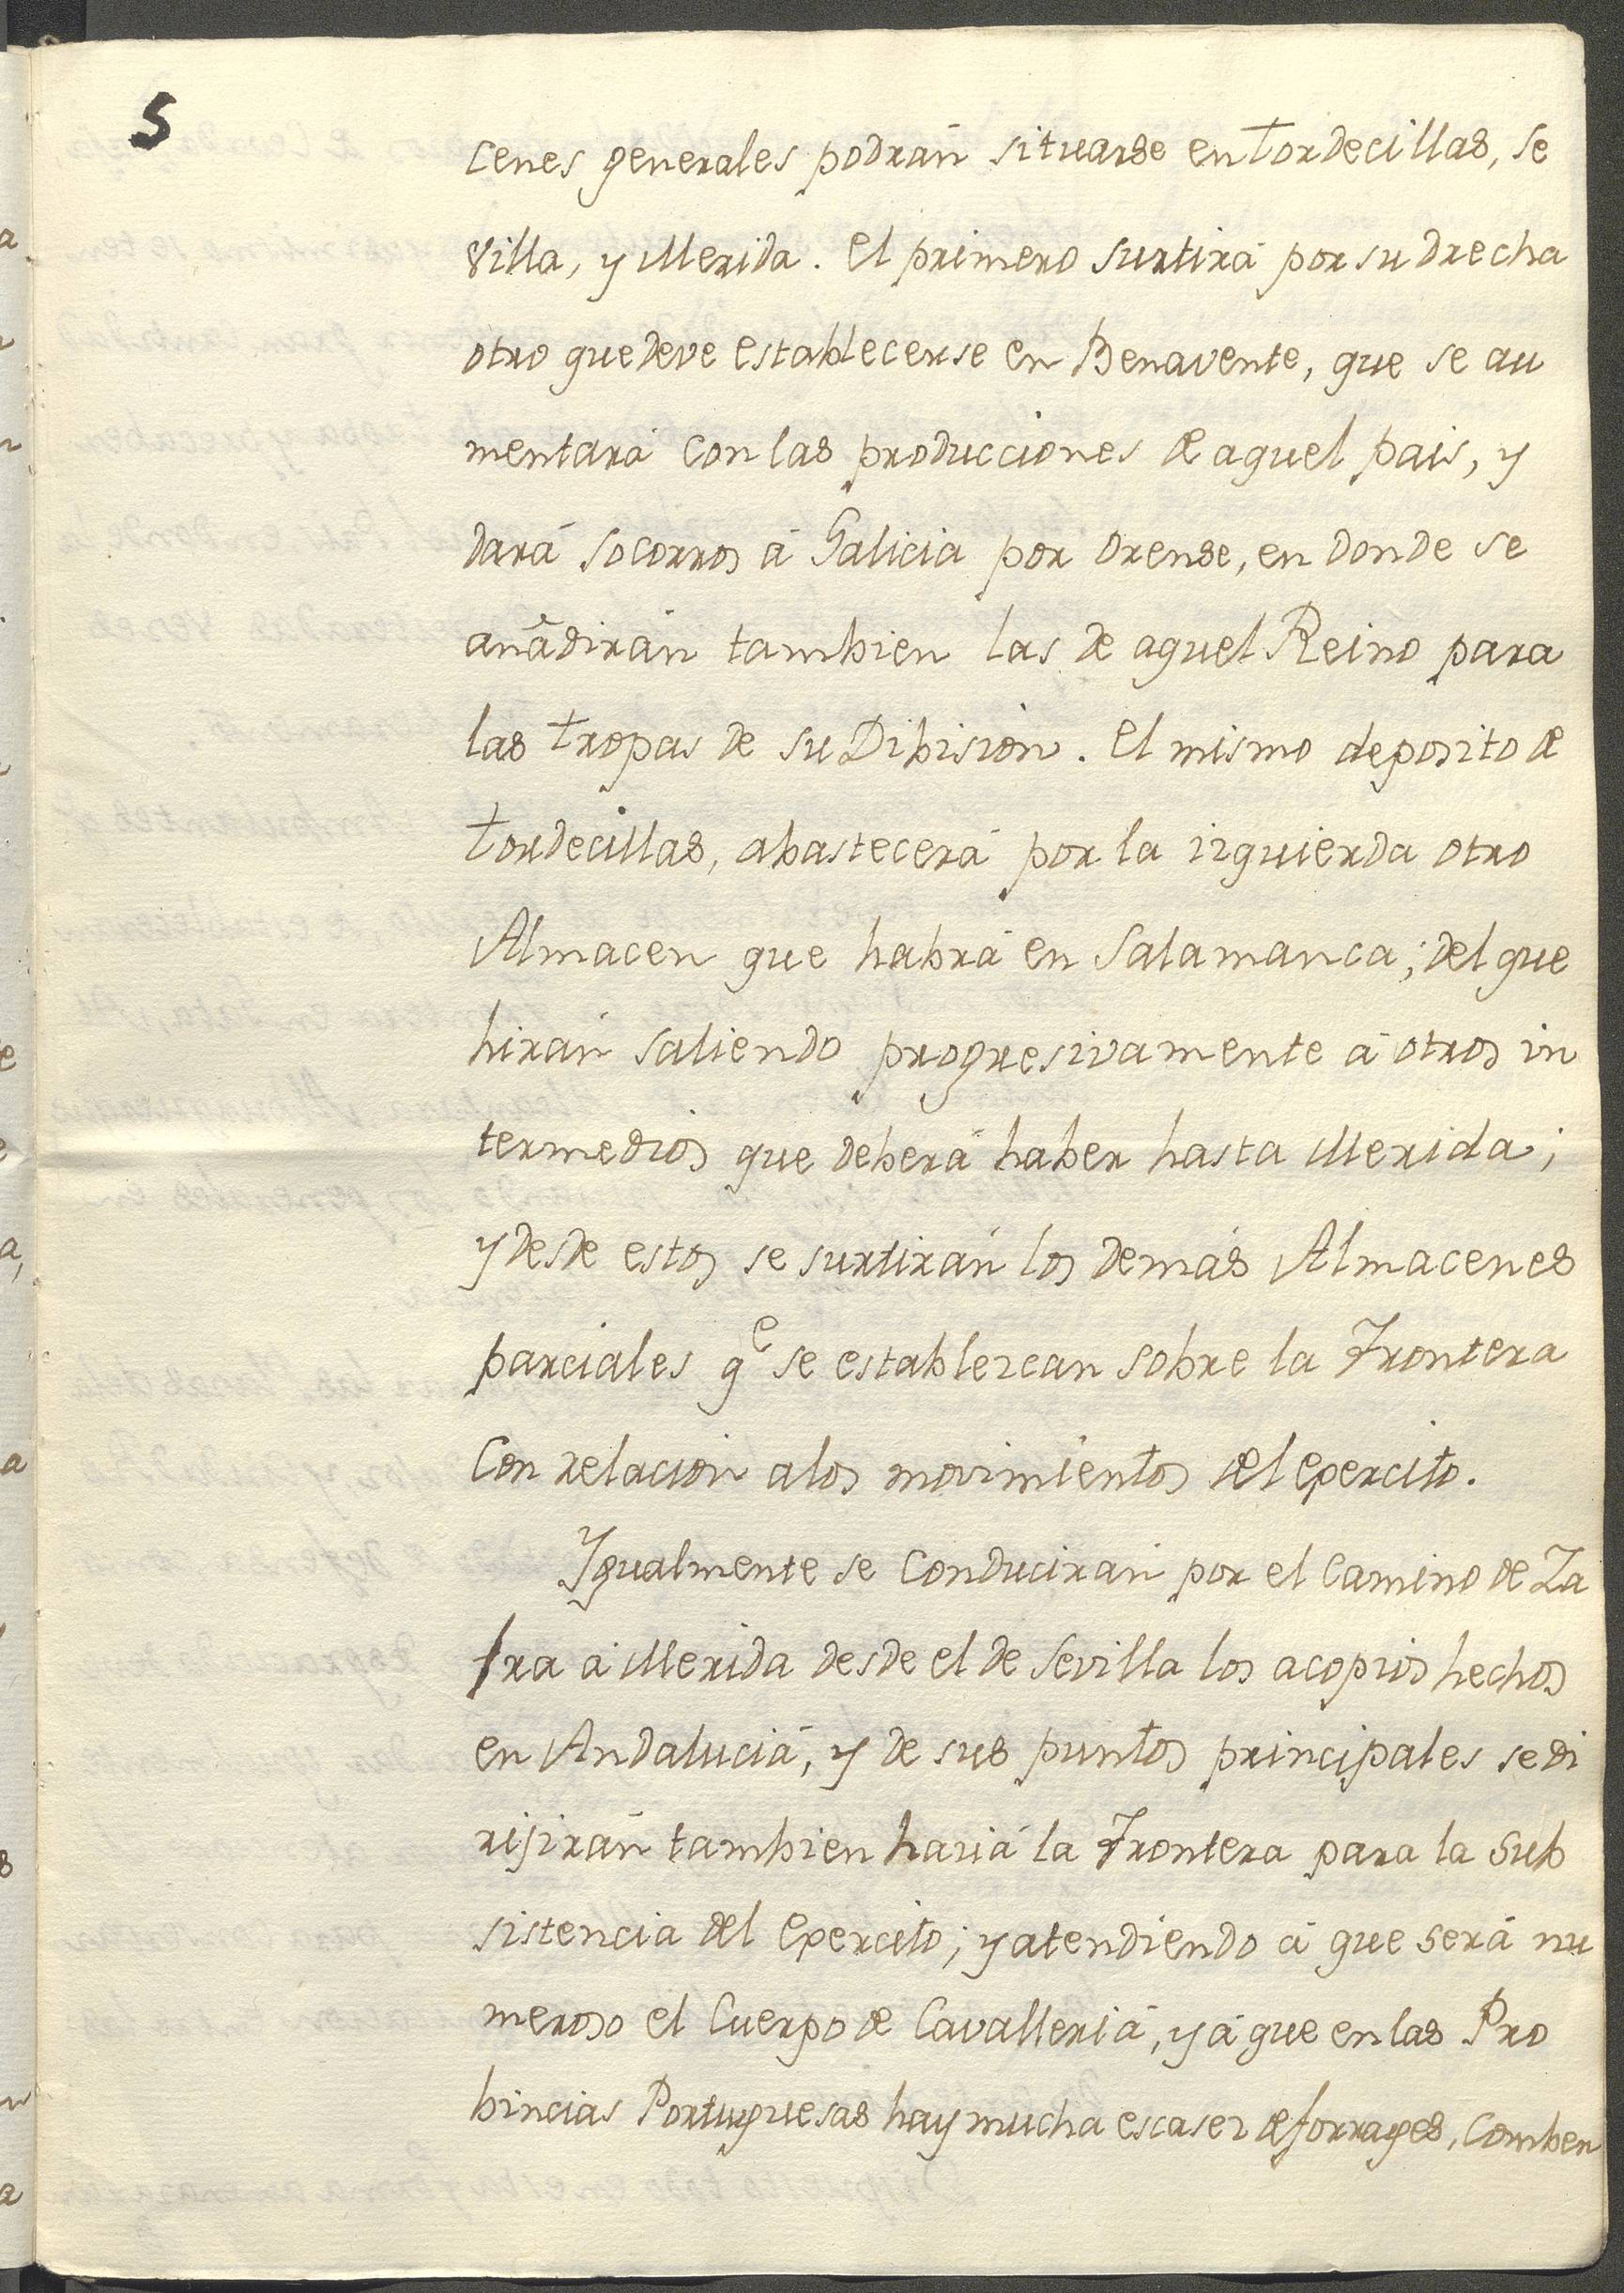 5
cenes generales podrán situarse en Tordecillas, Se
villa, y Merida. El primero surtirá por su drecha
otro que deve establecerse en Benavente, que se au
mentará con las producciones de aquel pais, y
dará socorros á Galicia por Orense, en donde se
añadirán tambien las de aquel Reino para
las tropas de su Dibision. El mismo deposito de
Tordecillas, abastecerá por la izquierda otro
Almacen que habrá en Salamanca; del que
hirán saliendo progresivamente á otros in
termedios que deberá haber hasta Merida;
y desde estos se surtirán los demás Almacenes
parciales qe se establezcan sobre la Frontera
con relacion a los movimientos del Exercito.
Ygualmente se conducirán por el camino de Za
fra á Merida desde el de Sevilla los acopios hechos
en Andaluciá, y de sus puntos principales se di
rijirán tambien haciá la Frontera para la sub
sistencia del Exercito; y atendiendo á que será nu
meroso el Cuerpo de Cavalleriá, y á que en las Pro
bincias Portuguesas hay mucha escasez de forrages, comben